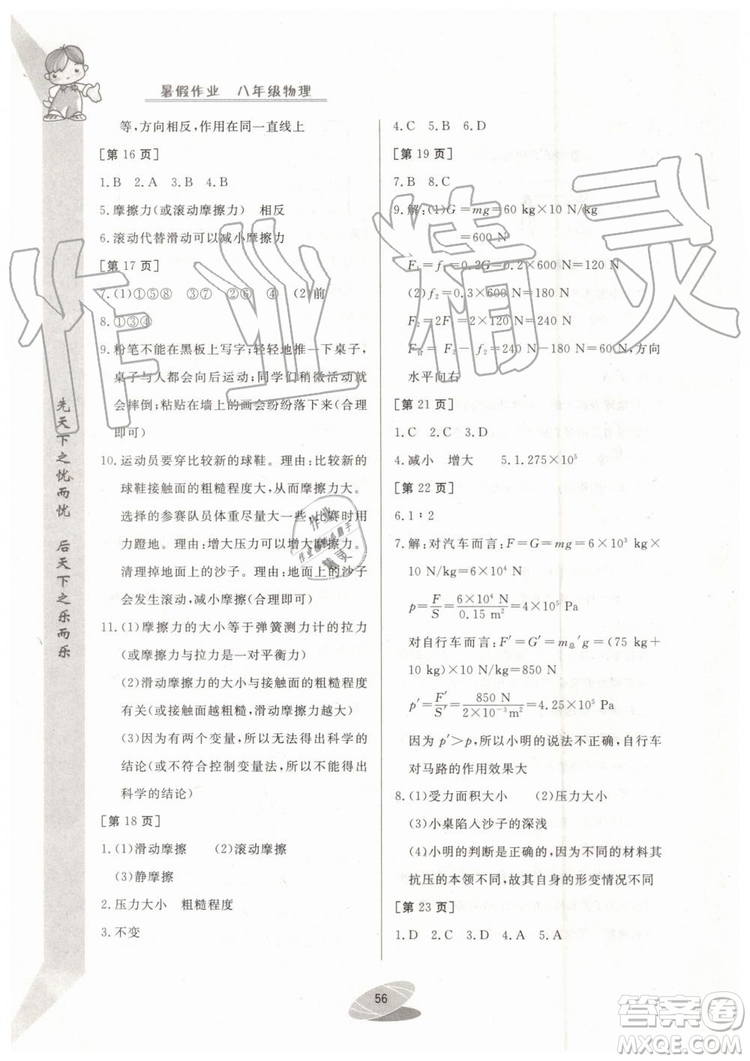 暑假作业 八年级物理
等,方向相反,作用在同一直线上
[第 16 页]
1.B 2.A 3.B 4.B
5.摩擦力(或滚动摩擦力) 相反
6.滚动代替滑动可以减小摩擦力
[第 17 页]
7.(1)①⑤⑧ ③⑦ ②④⑥ (2)前
8.①③④
9.粉笔不能在黑板上写字;轻轻地推一下桌子,
桌子与人都会向后运动;同学们稍微活动就
会摔倒;粘贴在墙上的画会纷纷落下(合理
即可)
10.运动员要穿比较新的球鞋。理由:比较新的
球鞋接触面的粗糙程度大,摩擦力大。
选择的参赛队员体重大一些,
力蹬地。理由:增大压力可以增大摩擦力。
清理掉地面上的沙子。理由:
会发生滚动,减小摩擦(合理即可)
11.(1)摩擦力的大小等于弹簧测力计的拉力
(或摩擦力与拉力是一对平衡力)
(2)滑动摩擦力的大小与接触面的粗糙程度
有关(或接触面越粗糙,滑动摩擦力越大)
(3)因为有两个变量,所以无法得出科学的
结论(或不符合控制变量法,所以不能得出
科学的结论)
[第 18 页]
1.(1)滑动摩擦 (2)滚动摩擦
(3)静摩擦
2.压力大小 粗糙程度
3.不变
4.C 5.B 6.D
[第 19 页]
7.B 8.C
9.解:(1)G=mg=60 kg×10 N/kg
=600 N
F₁=f₁=0.2G=0.2×600 N=120 N
(2)f₂=0.3G=0.3×600 N=180 N
F₂=2F₁=2×120 N=240 N
F合=F₂-f₂=240 N-180 N=60 N,方向
水平向右
[第 21 页]
1.C 2.D 3.C
4.减小 增大 5.1.275×10⁵
[第 22 页]
6.1∶2
7.解:对汽车而言:F=G=mg=6×10³ kg×
10 N/kg=6×10⁴ N
p=F/S=6×10⁴ N/0.15 m²=4×10⁵ Pa
对自行车而言:F′=G′=m总′g=(75 kg+
10 kg)×10 N/kg=850 N
p′=F′/S′=850 N/2×10⁻³ m²=4.25×10⁵ Pa
因为 p′>p,所以小明的说法不正确,自行车
对马路的作用效果大
8.(1)受力面积大小 (2)压力大小
(3)小桌陷入沙子的深浅
(4)小明的判断是正确的,因为不同的材料其
抗压的本领不同,故其自身的形变情况不同
[第 23 页]
1.D 2.C 3.D 4.A 5.A
先天下之忧而忧 后天下之乐而乐
56
作业精灵
答案圈
MXQE.COM